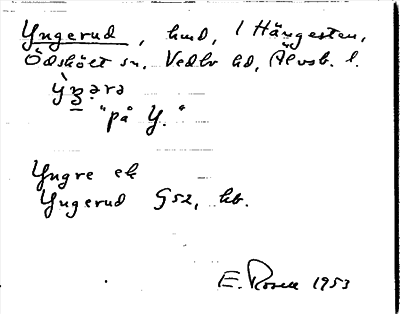 Yngerud, hmd, l Hängesten,
Ödskölt sn. Vedbo hd, Älvsb. l.
ỳŋ̲ərə
"på Y."
Yngre ek
Yngerud G52, kb.
E. Rosell 1953